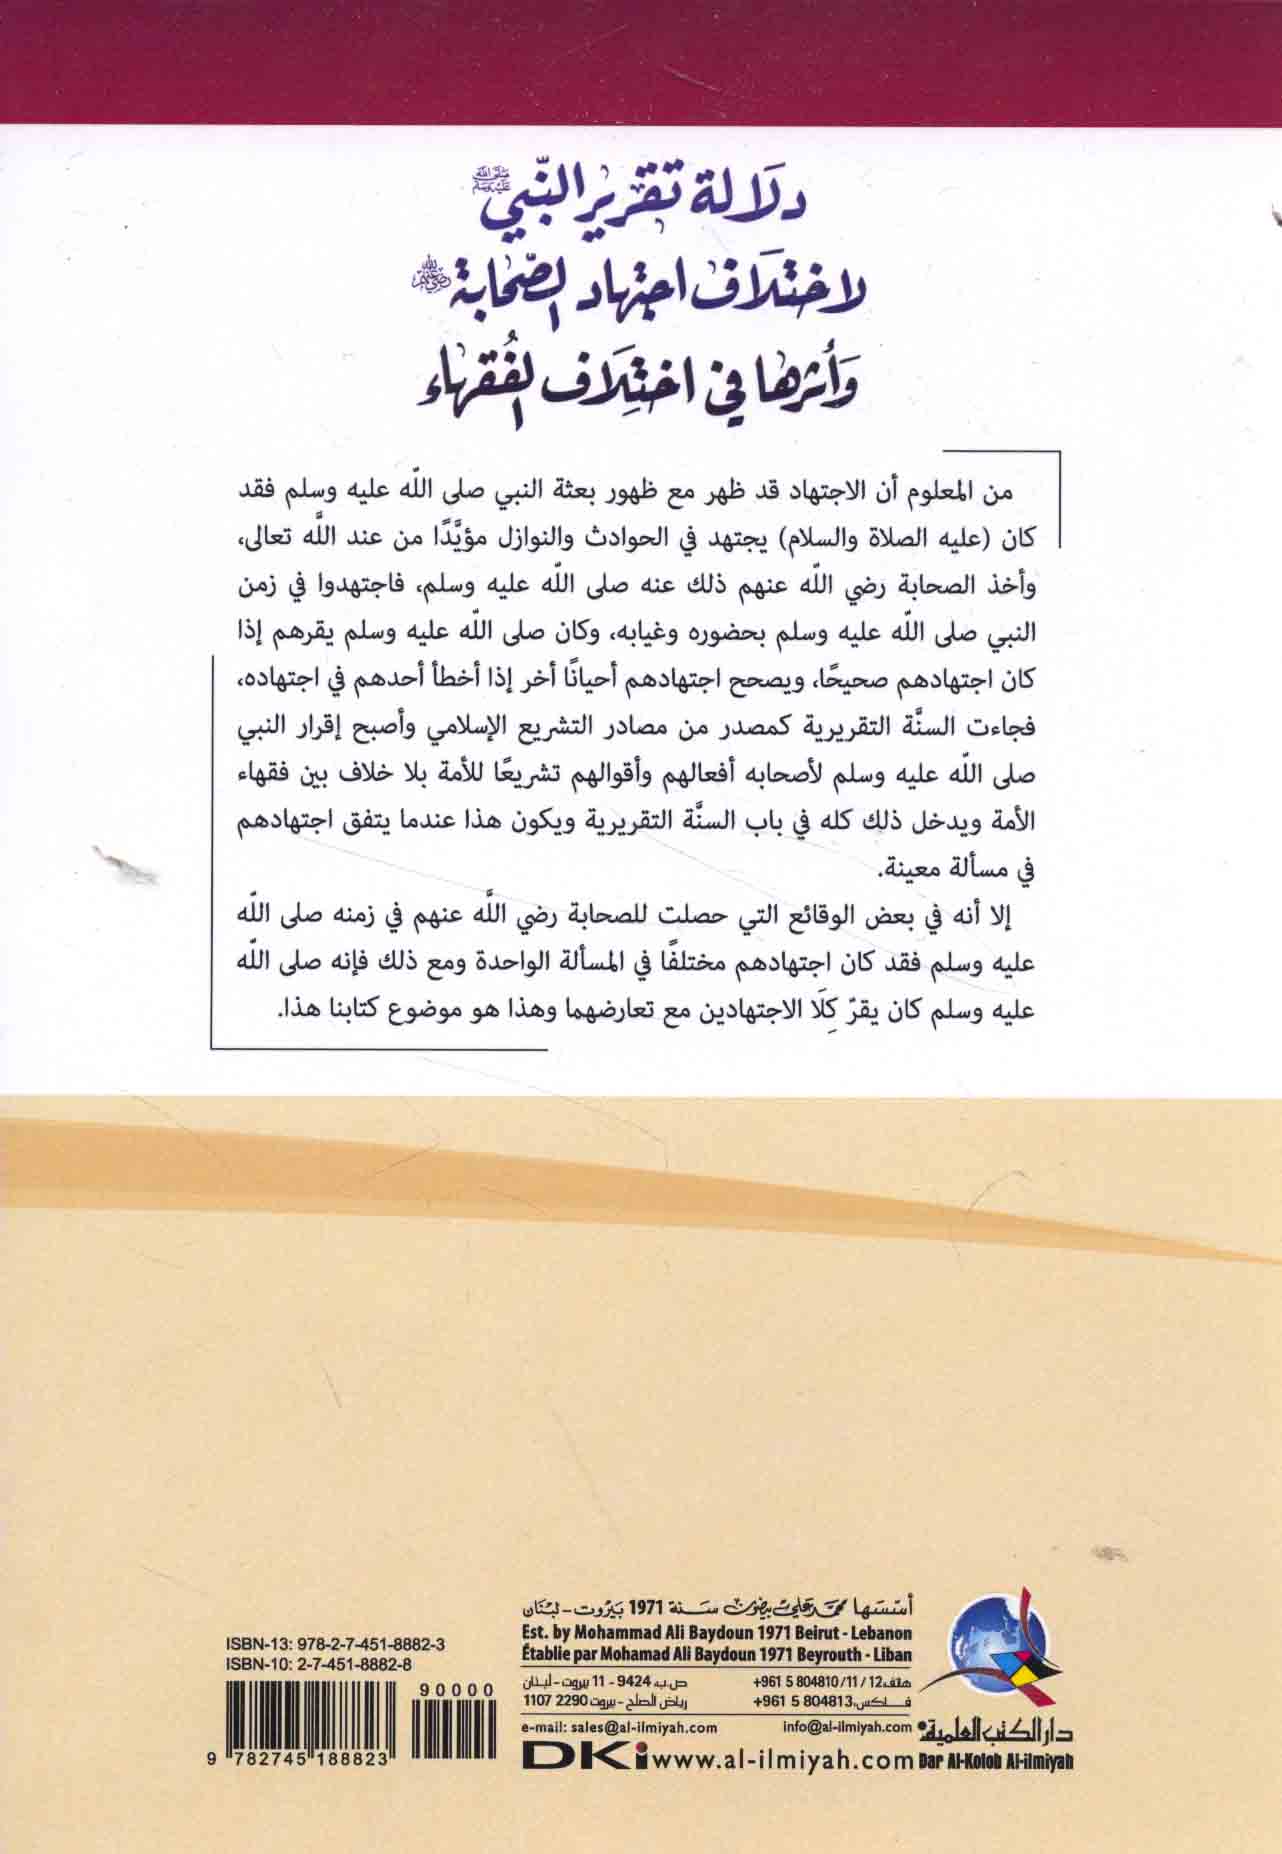 دلالة تقرير النّبي ﷺ
لاختلاف اجتهاد الصّحابة رضي الله عنهم
وأثرها في اختلاف الفُقهاء
من المعلوم أن الاجتهاد قد ظهر مع ظهور بعثة النبي صلى اللّه عليه وسلم فقد
كان (عليه الصلاة والسلام) يجتهد في الحوادث والنوازل مؤيَّدًا من عند اللَّه تعالى،
وأخذ الصحابة رضي اللّه عنهم ذلك عنه صلى اللّه عليه وسلم، فاجتهدوا في زمن
النبي صلى اللّه عليه وسلم بحضوره وغيابه، وكان صلى اللّه عليه وسلم يقرهم إذا
كان اجتهادهم صحيحًا، ويصحح اجتهادهم أحيانًا أخر إذا أخطأ أحدهم في اجتهاده،
فجاءت السنَّة التقريرية كمصدر من مصادر التشريع الإسلامي وأصبح إقرار النبي
صلى اللّه عليه وسلم لأصحابه أفعالهم وأقوالهم تشريعًا للأمة بلا خلاف بين فقهاء
الأمة ويدخل ذلك كله في باب السنَّة التقريرية ويكون هذا عندما يتفق اجتهادهم
في مسألة معينة.
إلا أنه في بعض الوقائع التي حصلت للصحابة رضي اللَّه عنهم في زمنه صلى اللّه
عليه وسلم فقد كان اجتهادهم مختلفًا في المسألة الواحدة ومع ذلك فإنه صلى اللّه
عليه وسلم كان يقرّ كِلَا الاجتهادين مع تعارضهما وهذا هو موضوع كتابنا هذا.
ISBN-13: 978-2-7-451-8882-3
ISBN-10: 2-7-451-8882-8
90000
9 782745 188823
أسسها محمد علي بيضون سنة 1971 بيروت - لبنان
Est. by Mohammad Ali Baydoun 1971 Beirut - Lebanon
Établie par Mohamad Ali Baydoun 1971 Beyrouth - Liban
هاتف: +961 5 804810 / 11 / 12
ص.ب: 9424 - 11 بيروت - لبنان
فاكس: +961 5 804813
رياض الصلح - بيروت 2290 1107
e-mail: sales@al-ilmiyah.com
info@al-ilmiyah.com
DKi www.al-ilmiyah.com
دار الكتب العلمية
Dar Al-Kotob Al-ilmiyah